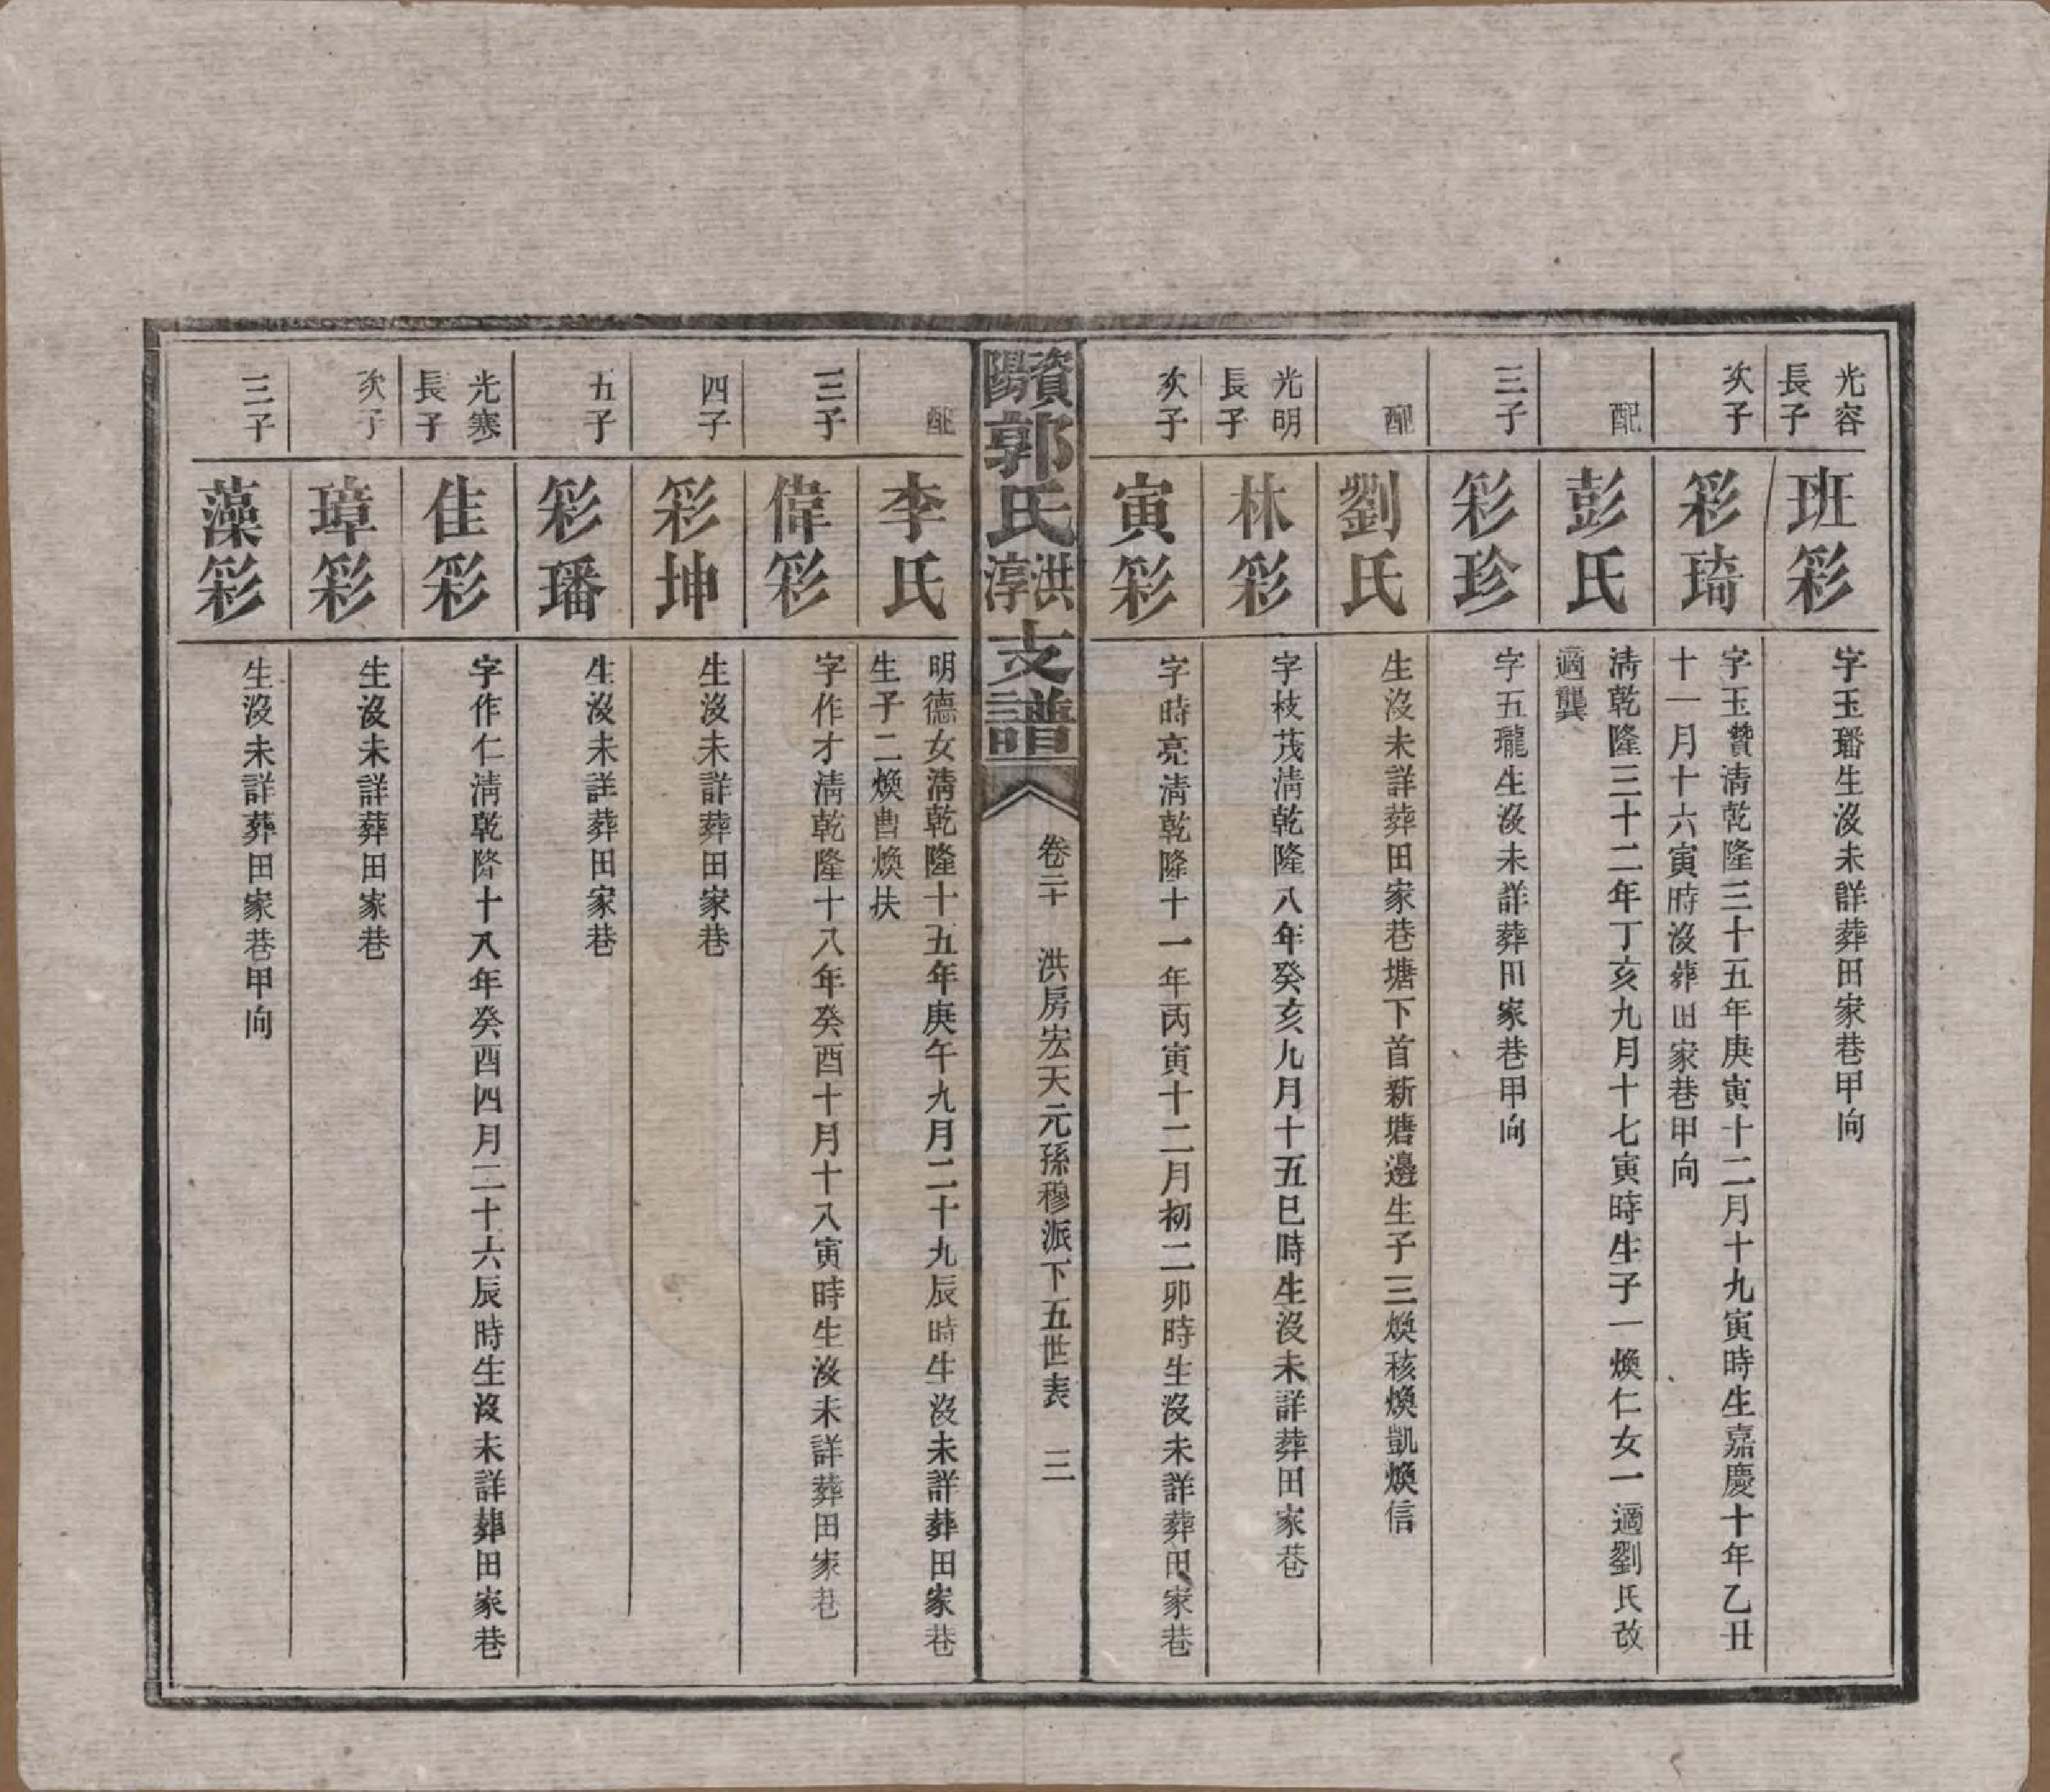 光容
長子
班彩
字玉璠生沒未詳葬田家巷甲向
次子
彩琦
字玉贊清乾隆三十五年庚寅十二月十九寅時生嘉慶十年乙丑
十一月十六寅時沒葬田家巷甲向
配
彭氏
清乾隆三十二年丁亥九月十七寅時生子一煥仁女一適劉氏改
適龔
三子
彩珍
字五瓏生沒未詳葬田家巷甲向
配
劉氏
生沒未詳葬田家巷塘下首新塘邊生子三煥核煥凱煥信
光明
長子
林彩
字枝茂清乾隆八年癸亥九月十五巳時生沒未詳葬田家巷
次子
寅彩
字時亮清乾隆十一年丙寅十二月初二卯時生沒未詳葬田家巷
資陽郭氏洪淳支譜
卷二十 洪房宏天元孫穆派下五世表 三
配
李氏
明德女清乾隆十五年庚午九月二十九辰時生沒未詳葬田家巷
生子二煥曹煥扶
三子
偉彩
字作才清乾隆十八年癸酉十月十八寅時生沒未詳葬田家巷
四子
彩坤
生沒未詳葬田家巷
五子
彩璠
生沒未詳葬田家巷
光寒
長子
佳彩
字作仁清乾隆十八年癸酉四月二十六辰時生沒未詳葬田家巷
次子
璋彩
生沒未詳葬田家巷
三子
藻彩
生沒未詳葬田家巷甲向